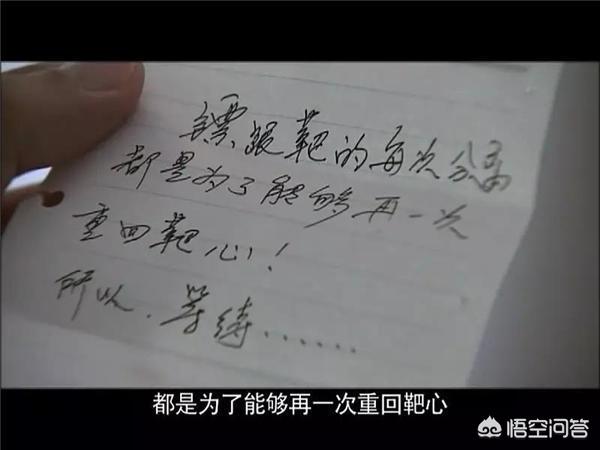 镖跟靶的每次分离
都是为了能够再一次
重回靶心!
所以.等待......
都是为了能够再一次重回靶心
悟空问答